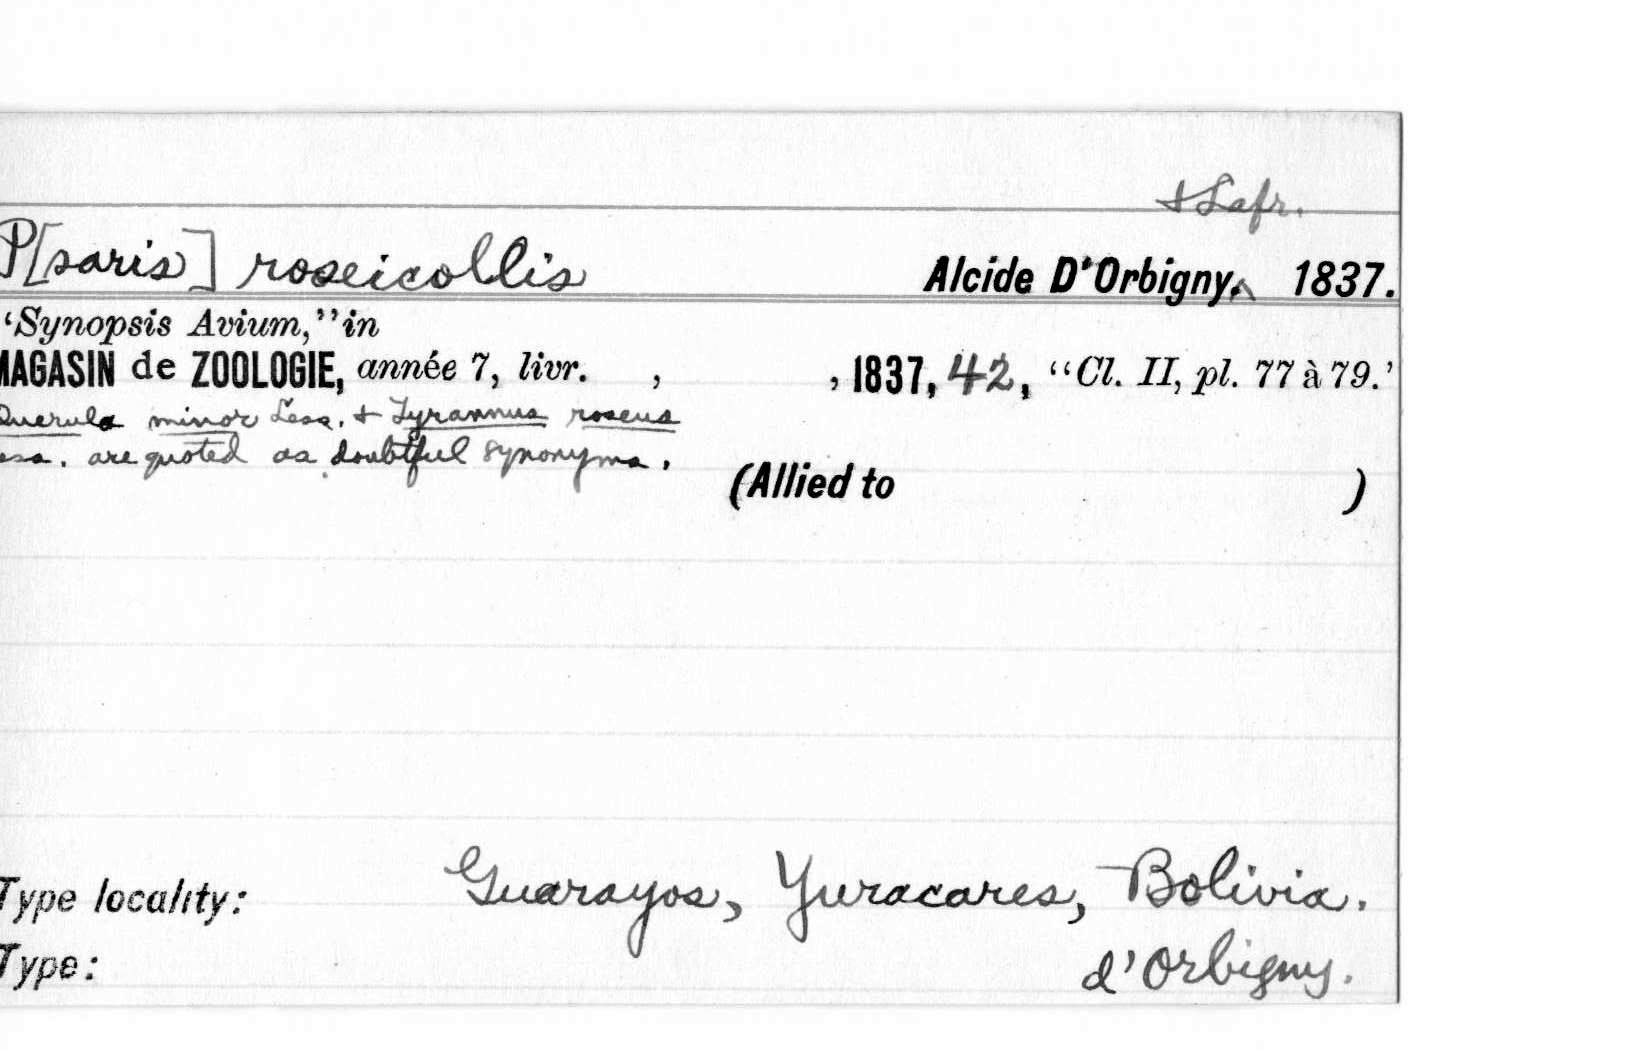 & Lafr.
P[saris] roseicollis Alcide D'Orbigny.^ 1837.
‘Synopsis Avium,” in
MAGASIN de ZOOLOGIE, année 7, livr. , , 1837, 42, “Cl. II, pl. 77 à 79.’
Querula minor Less. & Tyrannus roseus
ess. are quoted as doubtful synonyms.
(Allied to )
Type locality: Guarayos, Yuracares, Bolivia.
Type: d'Orbigny.